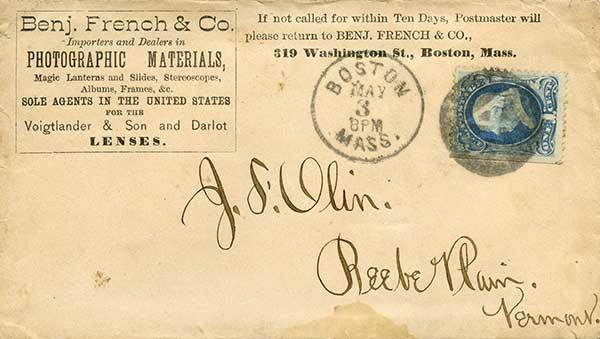 Benj. French & Co.
Importers and Dealers in
PHOTOGRAPHIC MATERIALS,
Magic Lanterns and Slides, Stereoscopes,
Albums, Frames, &c.
SOLE AGENTS IN THE UNITED STATES
FOR THE
Voigtlander & Son and Darlot
LENSES.
If not called for within Ten Days, Postmaster will
please return to BENJ. FRENCH & CO.,
319 Washington St., Boston, Mass.
BOSTON
MAY
3
8PM
MASS.
J. S. Olin.
Beebe Plain.
Vermont.